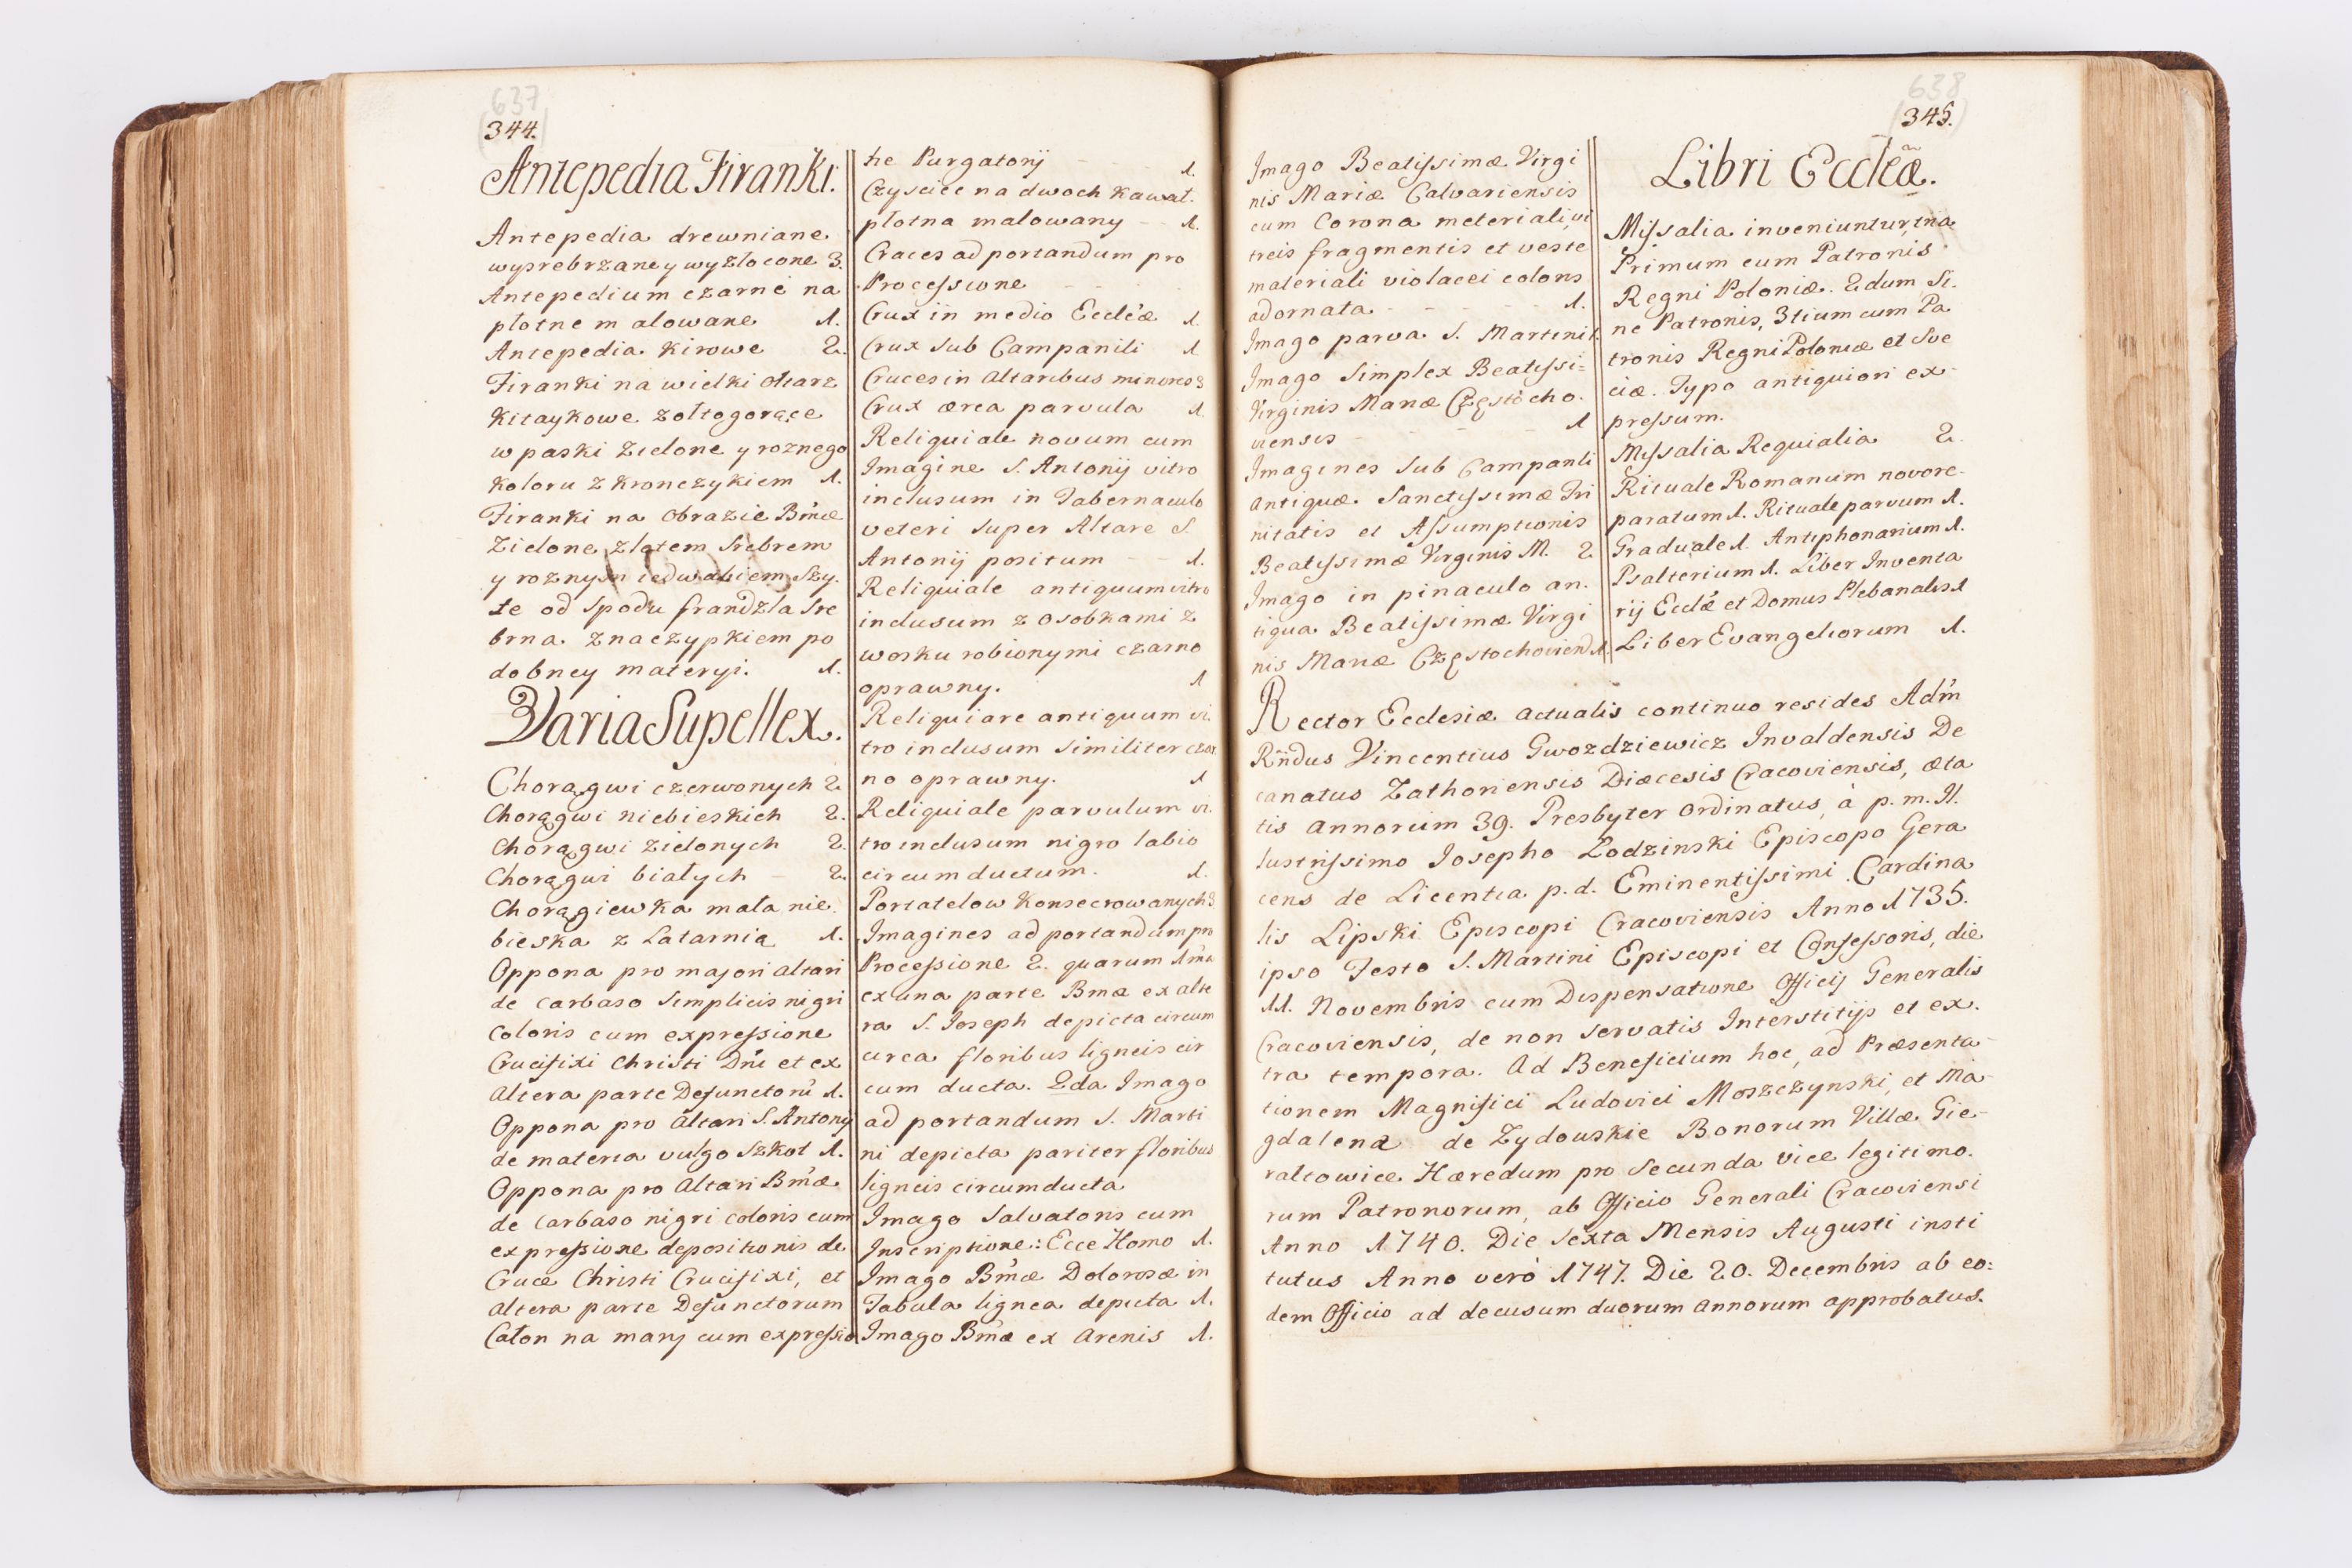 637
344.
Antepedia Firanki.
Antepedia drewniane
wysrebrzane y wyzłocone 3.
Antepedium czarne na
płotne malowane 1.
Antepedia kirowe 2.
Firanki na wielki ołtarz
kitaykowe zołtogorące
w paski zielone y roznego
koloru z kronczykiem 1.
Firanki na obrazie Bmæ
zielone zlotem srebrem
y roznym iedwabiem szy-
te od spodu frandzla sre
brna znaczypkiem po
dobney materyi. 1.
Varia Supellex.
Chorągwi czerwonych 2
Chorągwi niebieskich 2.
Chorągwi zielonych 2.
Chorągwi białych - 2.
Chorągiewka mała nie
bieska z Latarnią 1.
Oppona pro majori altari
de carbaso simplicis nigri
coloris cum expressione
Crucifixi Christi Dni et ex
altera parte Defunctorũ 1.
Oppona pro altari S. Antony
de materia vulgo Szkot 1.
Oppona pro altari Bmæ
de carbaso nigri coloris cum
expressione depositionis de
Cruce Christi Crucifixi, et
altera parte Defunctorum
Całon na mary cum expressio
he Purgatorij - 1.
Czyscice na dwoch kawał.
płotna malowany - - 1.
Cruces ad portandum pro
Processione - -
Crux in medio Eccleæ 1
Crux sub Campanili 1
Cruces in altaribus minores 3
Crux ærea parvula 1
Reliquiale novum cum
Imagine S. Antonij vitro
inclusum in Tabernaculo
veteri super Altare S.
Antonij positum - 1.
Reliquiale antiquum vitro
inclusum z osobkami z
wosku robionymi czarno
oprawny. 1
Reliquiare antiquum vi.
tro inclusum similiter czar
no oprawny. 1
Reliquiale parvulum vi.
tro inclusum nigro labio
circumductum. 1.
Portatelow konsecrowanych 3
Imagines ad portandum pro
Processione 2. quarum 1ma
ex una parte Bmæ ex alte
ra S. Joseph depicta circum
circa floribus ligneis cir
cum ducta. 2da Imago
ad portandum S. Marti
ni depicta pariter floribus
ligneis circumducta
Imago Salvatoris cum
Inscriptione: Ecce Homo 1.
Imago Bmæ Dolorosæ in
Tabula lignea depicta 1.
Imago Bmæ ex arenis 1.
638
345.
Imago Beatissimæ Virgi
nis Mariæ Calvariensis
cum Corona meteriali, vi
treis fragmentis et veste
materiali violacei coloris
adornata - - - 1.
Imago parva S. Martini 1.
Imago simplex Beatissi=
Virginis Mariæ Częstocho.
viensis - - - - 1
Imagines sub Campanili
antiquæ Sanctissimæ Tri
nitatis et Assumptionis
Beatissimæ Virginis M. 2
Imago in pinaculo an.
tiqua Beatissimæ Virgi
nis Mariæ Częstochovien 1.
Libri Eccleæ.
Missalia inveniuntur, tria
Primum cum Patronis
Regni Poloniæ. 2dum Si.
ne Patronis, 3tium cum Pa
tronis Regni Poloniæ et Sve
ciæ. Typo antiquiori ex-
pressum.
Missalia Requialia 2.
Rituale Romanum novore-
paratum 1. Rituale parvum 1.
Graduale 1. Antiphonarium 1.
Psalterium 1. Liber Inventa
rij Eccleæ et Domus Plebanalis 1
Liber Evangeliorum 1.
Rector Ecclesiæ actualis continuo resides Adm
Rndus Vincentius Gwozdziewicz Invaldensis De
canatus Zathoriensis Diæcesis Cracoviensis, æta
tis annorum 39. Presbyter ordinatus, à p. m. Il.
lustrissimo Josepho Lodzinski Episcopo Gera
cens de Licentia p. d. Eminentissimi Cardina
lis Lipski Episcopi Cracoviensis Anno 1735.
ipso Festo S. Martini Episcopi et Confessoris, die
11. Novembris cum Dispensatione Officij Generalis
Cracoviensis, de non servatis Interstitijs et ex.
tra tempora. Ad Beneficium hoc, ad Præsenta-
tionem Magnifici Ludovici Moszczynski, et Ma-
gdalena de Zydowskie Bonorum Villæ Gie-
rałtowice Hæredum pro secunda vice legitimo.
rum Patronorum, ab Officio Generali Cracoviensi
Anno 1740. Die sexta Mensis Augusti insti
tutus Anno verò 1747. Die 20. Decembris ab eo:
dem Officio ad decusum duorum annorum approbatus.